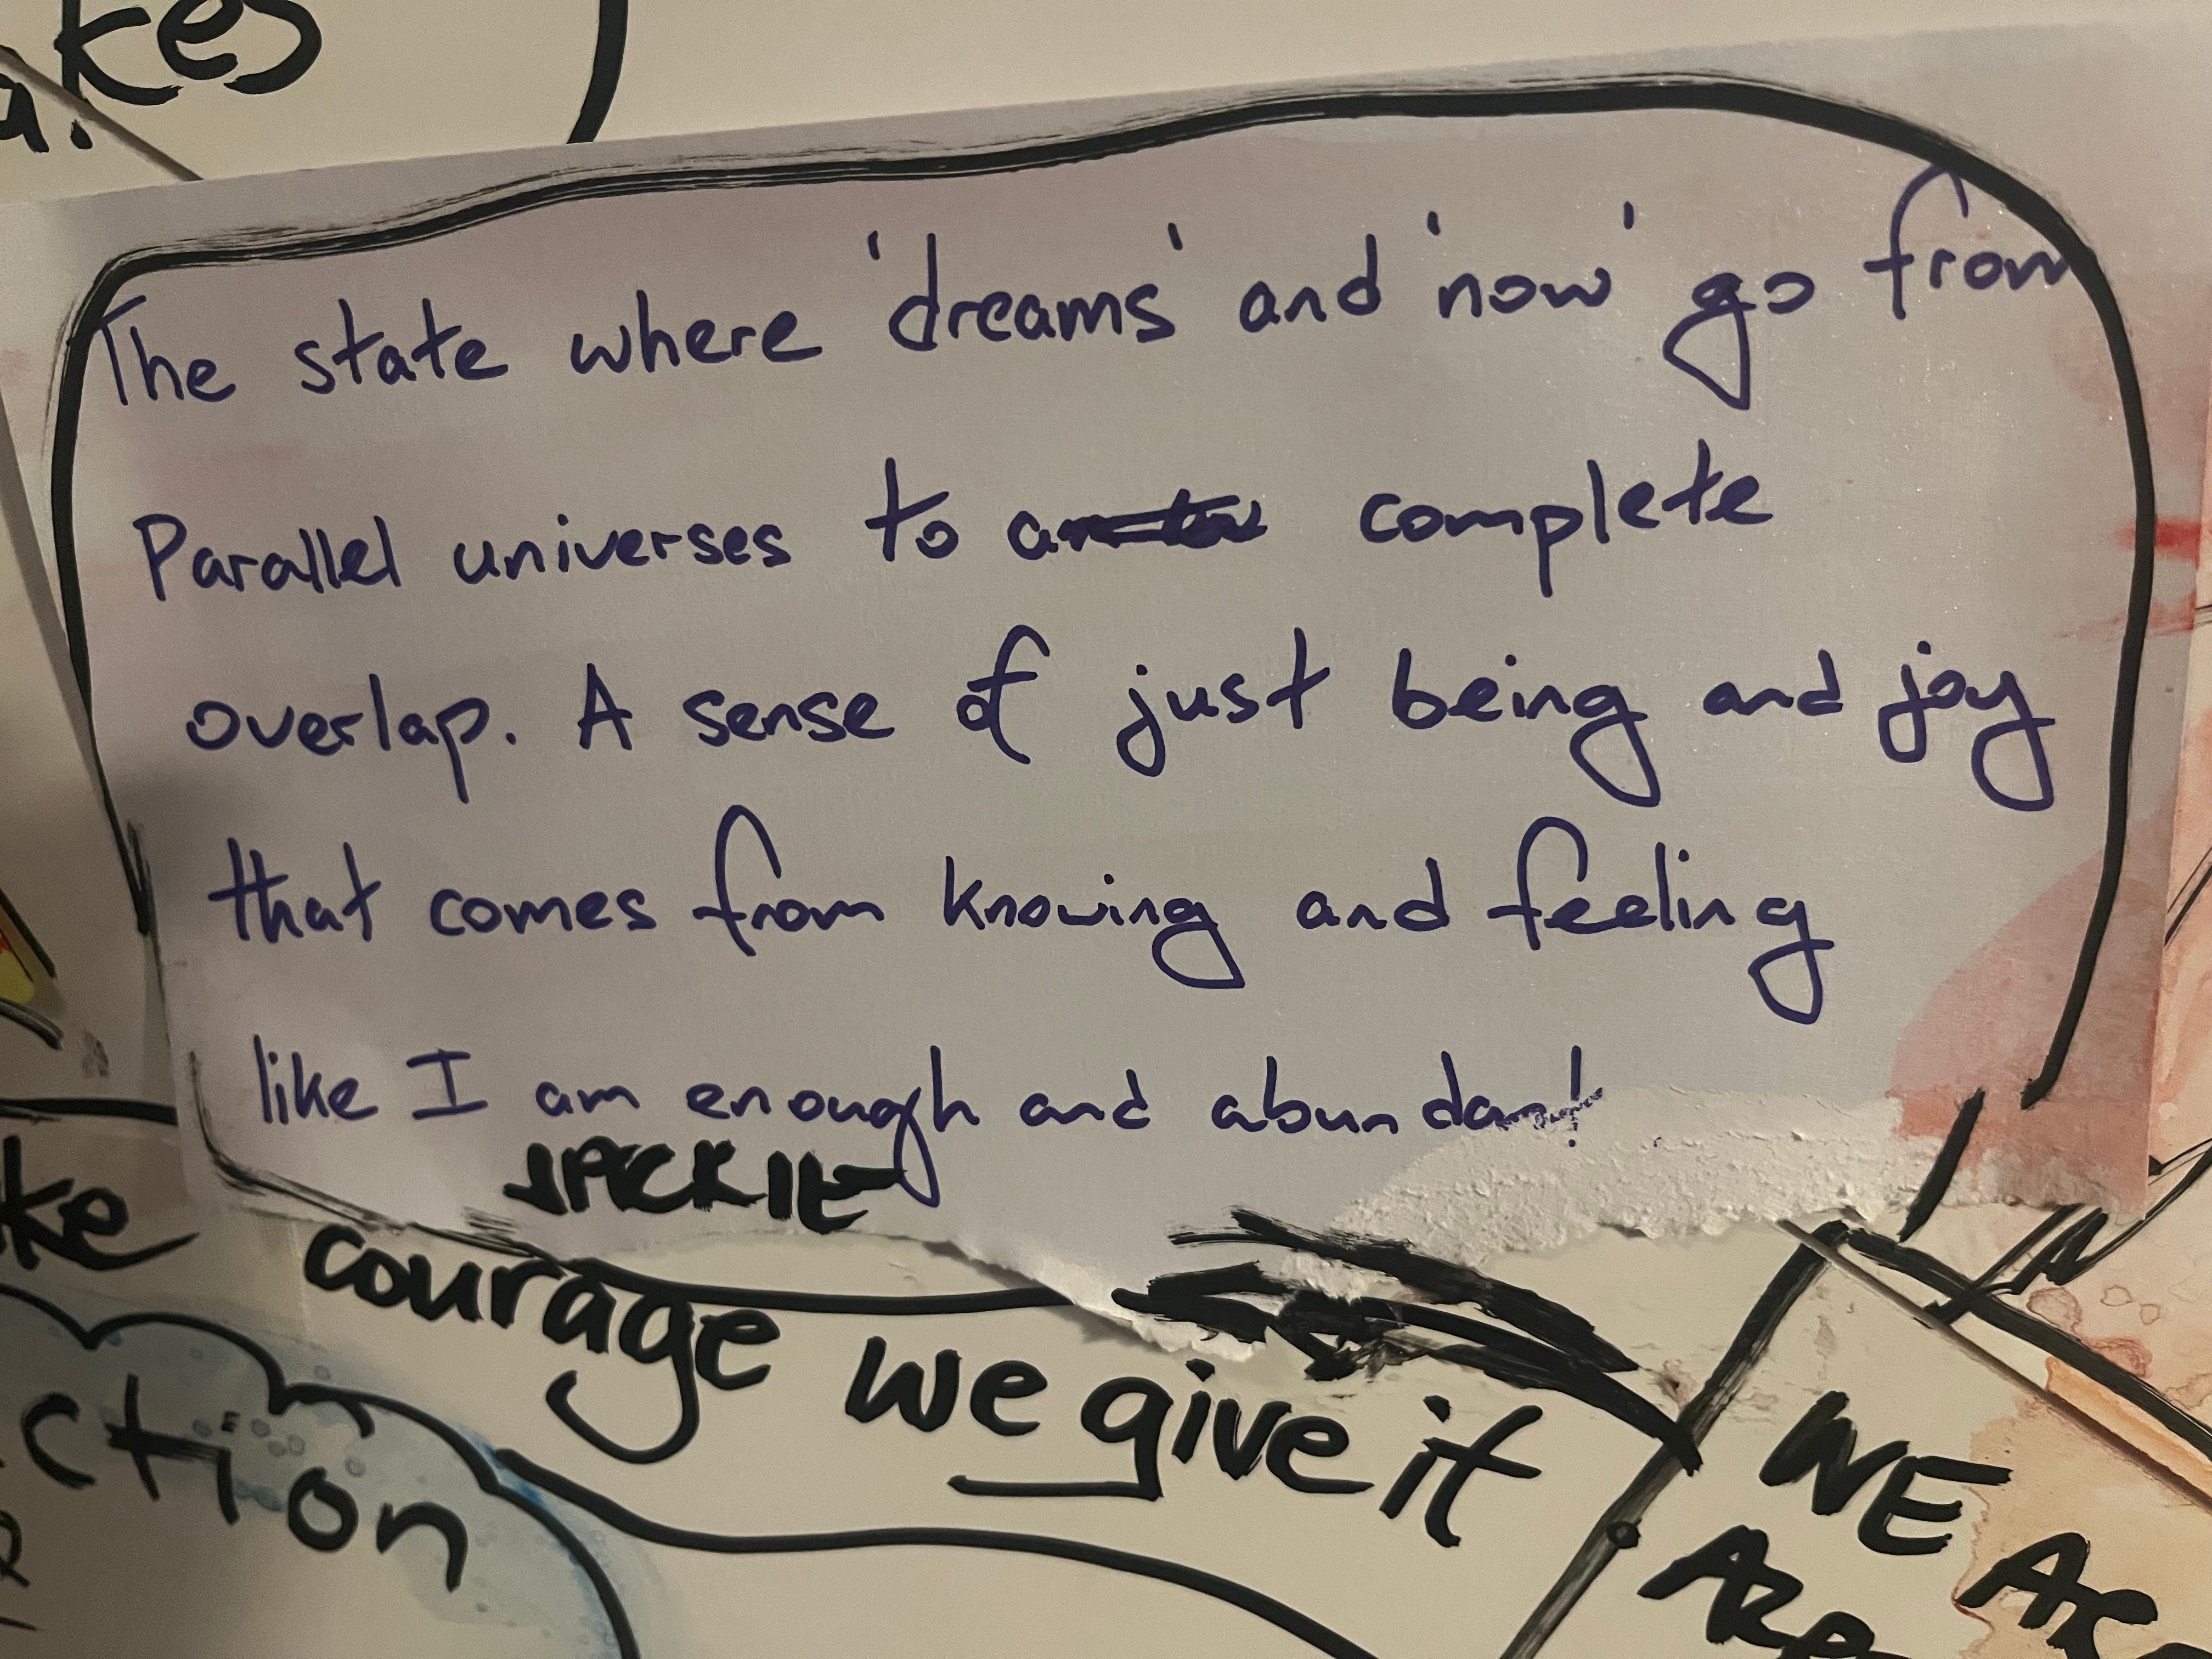 kes
a.
The state where 'dreams' and 'now' go from
Parallel universes to complete
overlap. A sense of just being and joy
that comes from knowing and feeling
like I am enough and abundant
JACKIE
ke courage we give it
ction
WE